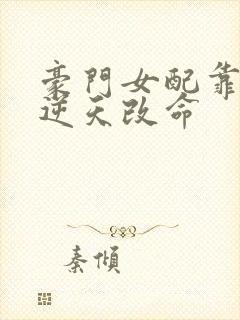 豪門女配靠
逆天改命
秦傾